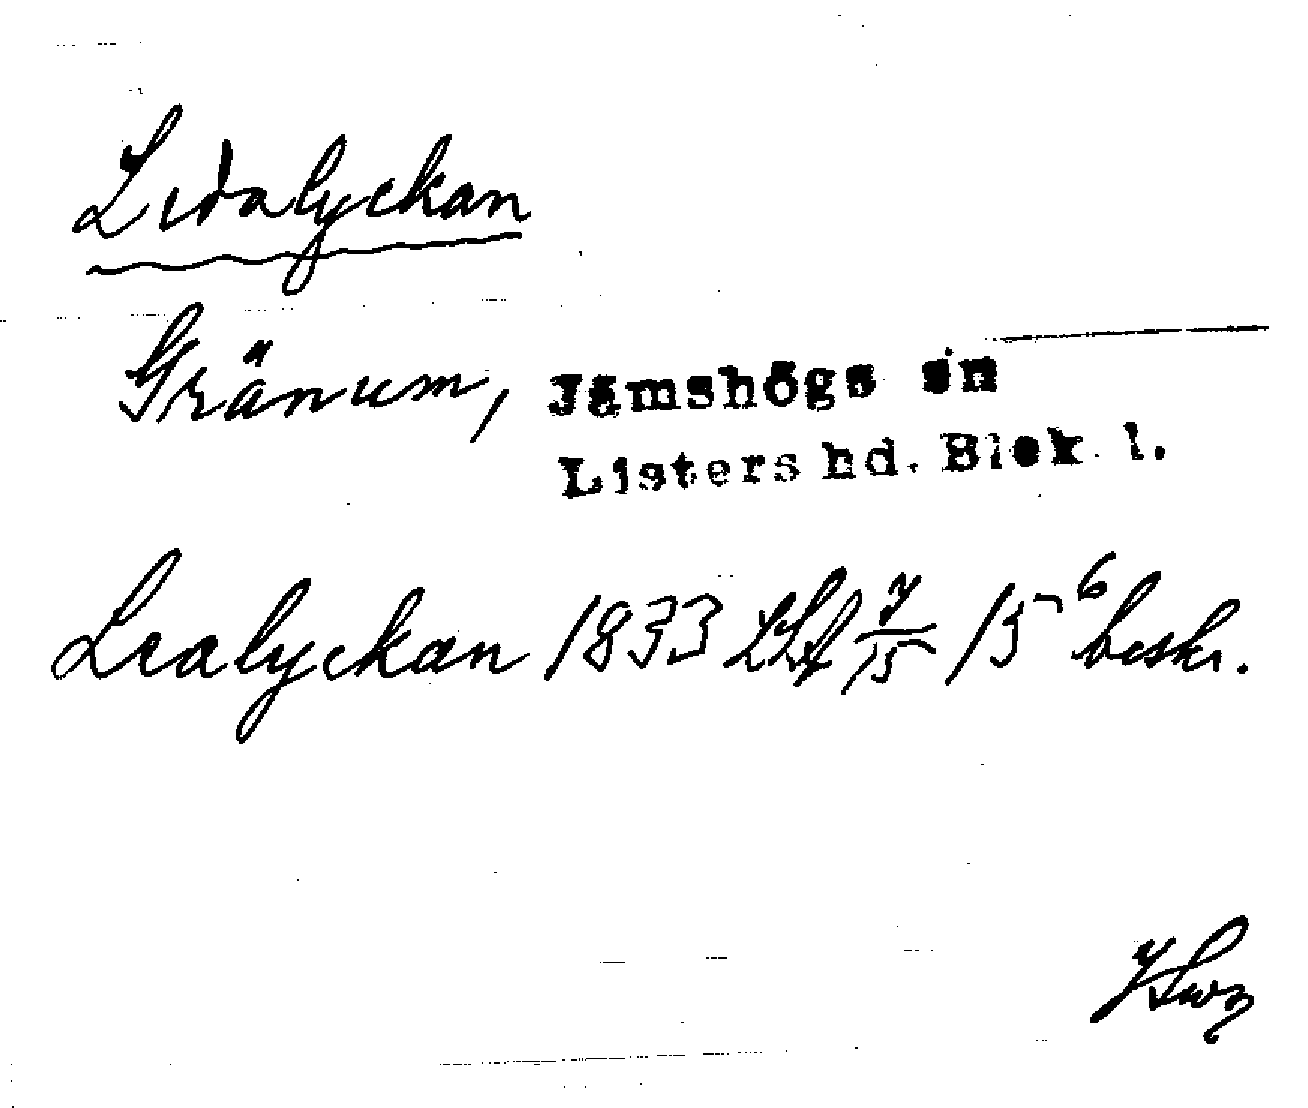 Lidalyckan
Gränum, Jämshögs sn
Listers hd. Blek. l.
Lealyckan 1833 LSA 7/15 15⁶ beskr.